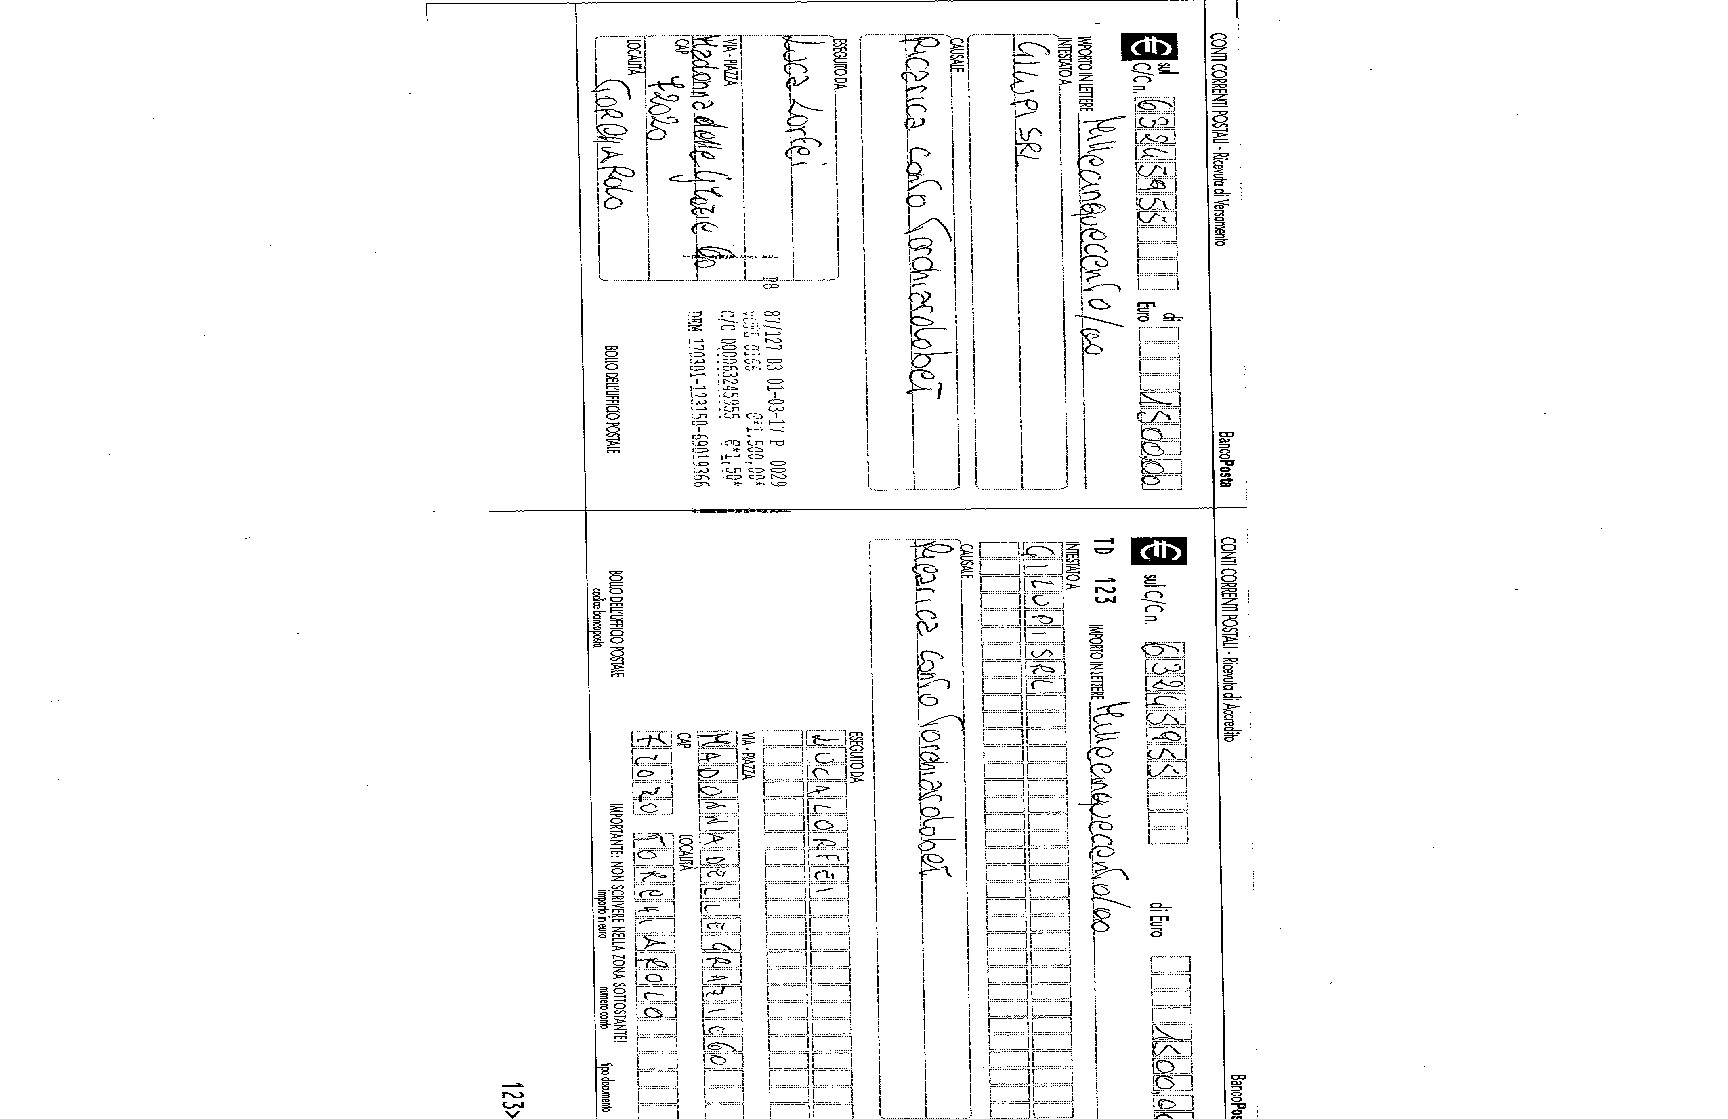 CONTI CORRENTI POSTALI - Ricevuta di Versamento
BancoPosta
€ sul C/C n. 63245955 di Euro 1500,00
IMPORTO IN LETTERE Millecinquecento/00
INTESTATO A
GILUPI SRL
CAUSALE
Ricarica conto Torchiarolobet
ESEGUITO DA
Luca Lorfei
VIA - PIAZZA
Madonna delle Grazie 60
CAP
72020
LOCALITÀ
TORCHIAROLO
87/127 03 01-03-17 P 0029
€*1.500,00*
C/C 000063245955 €*1,50*
BOLLO DELL'UFFICIO POSTALE
CONTI CORRENTI POSTALI - Ricevuta di Accredito
BancoPos
€ sul C/C n. 63245955 di Euro 1500,0
TD 123 IMPORTO IN LETTERE Millecinquecento/00
INTESTATO A
GILUPI SRL
CAUSALE
Ricarica conto Torchiarolobet
ESEGUITO DA
LUCA LORFEI
VIA - PIAZZA
MADONNA DELLE GRAZIE 60
CAP LOCALITÀ
72020 TORCHIAROLO
BOLLO DELL'UFFICIO POSTALE
codice bancoposta
IMPORTANTE: NON SCRIVERE NELLA ZONA SOTTOSTANTE!
importo in euro numero conto tipo documento
123>